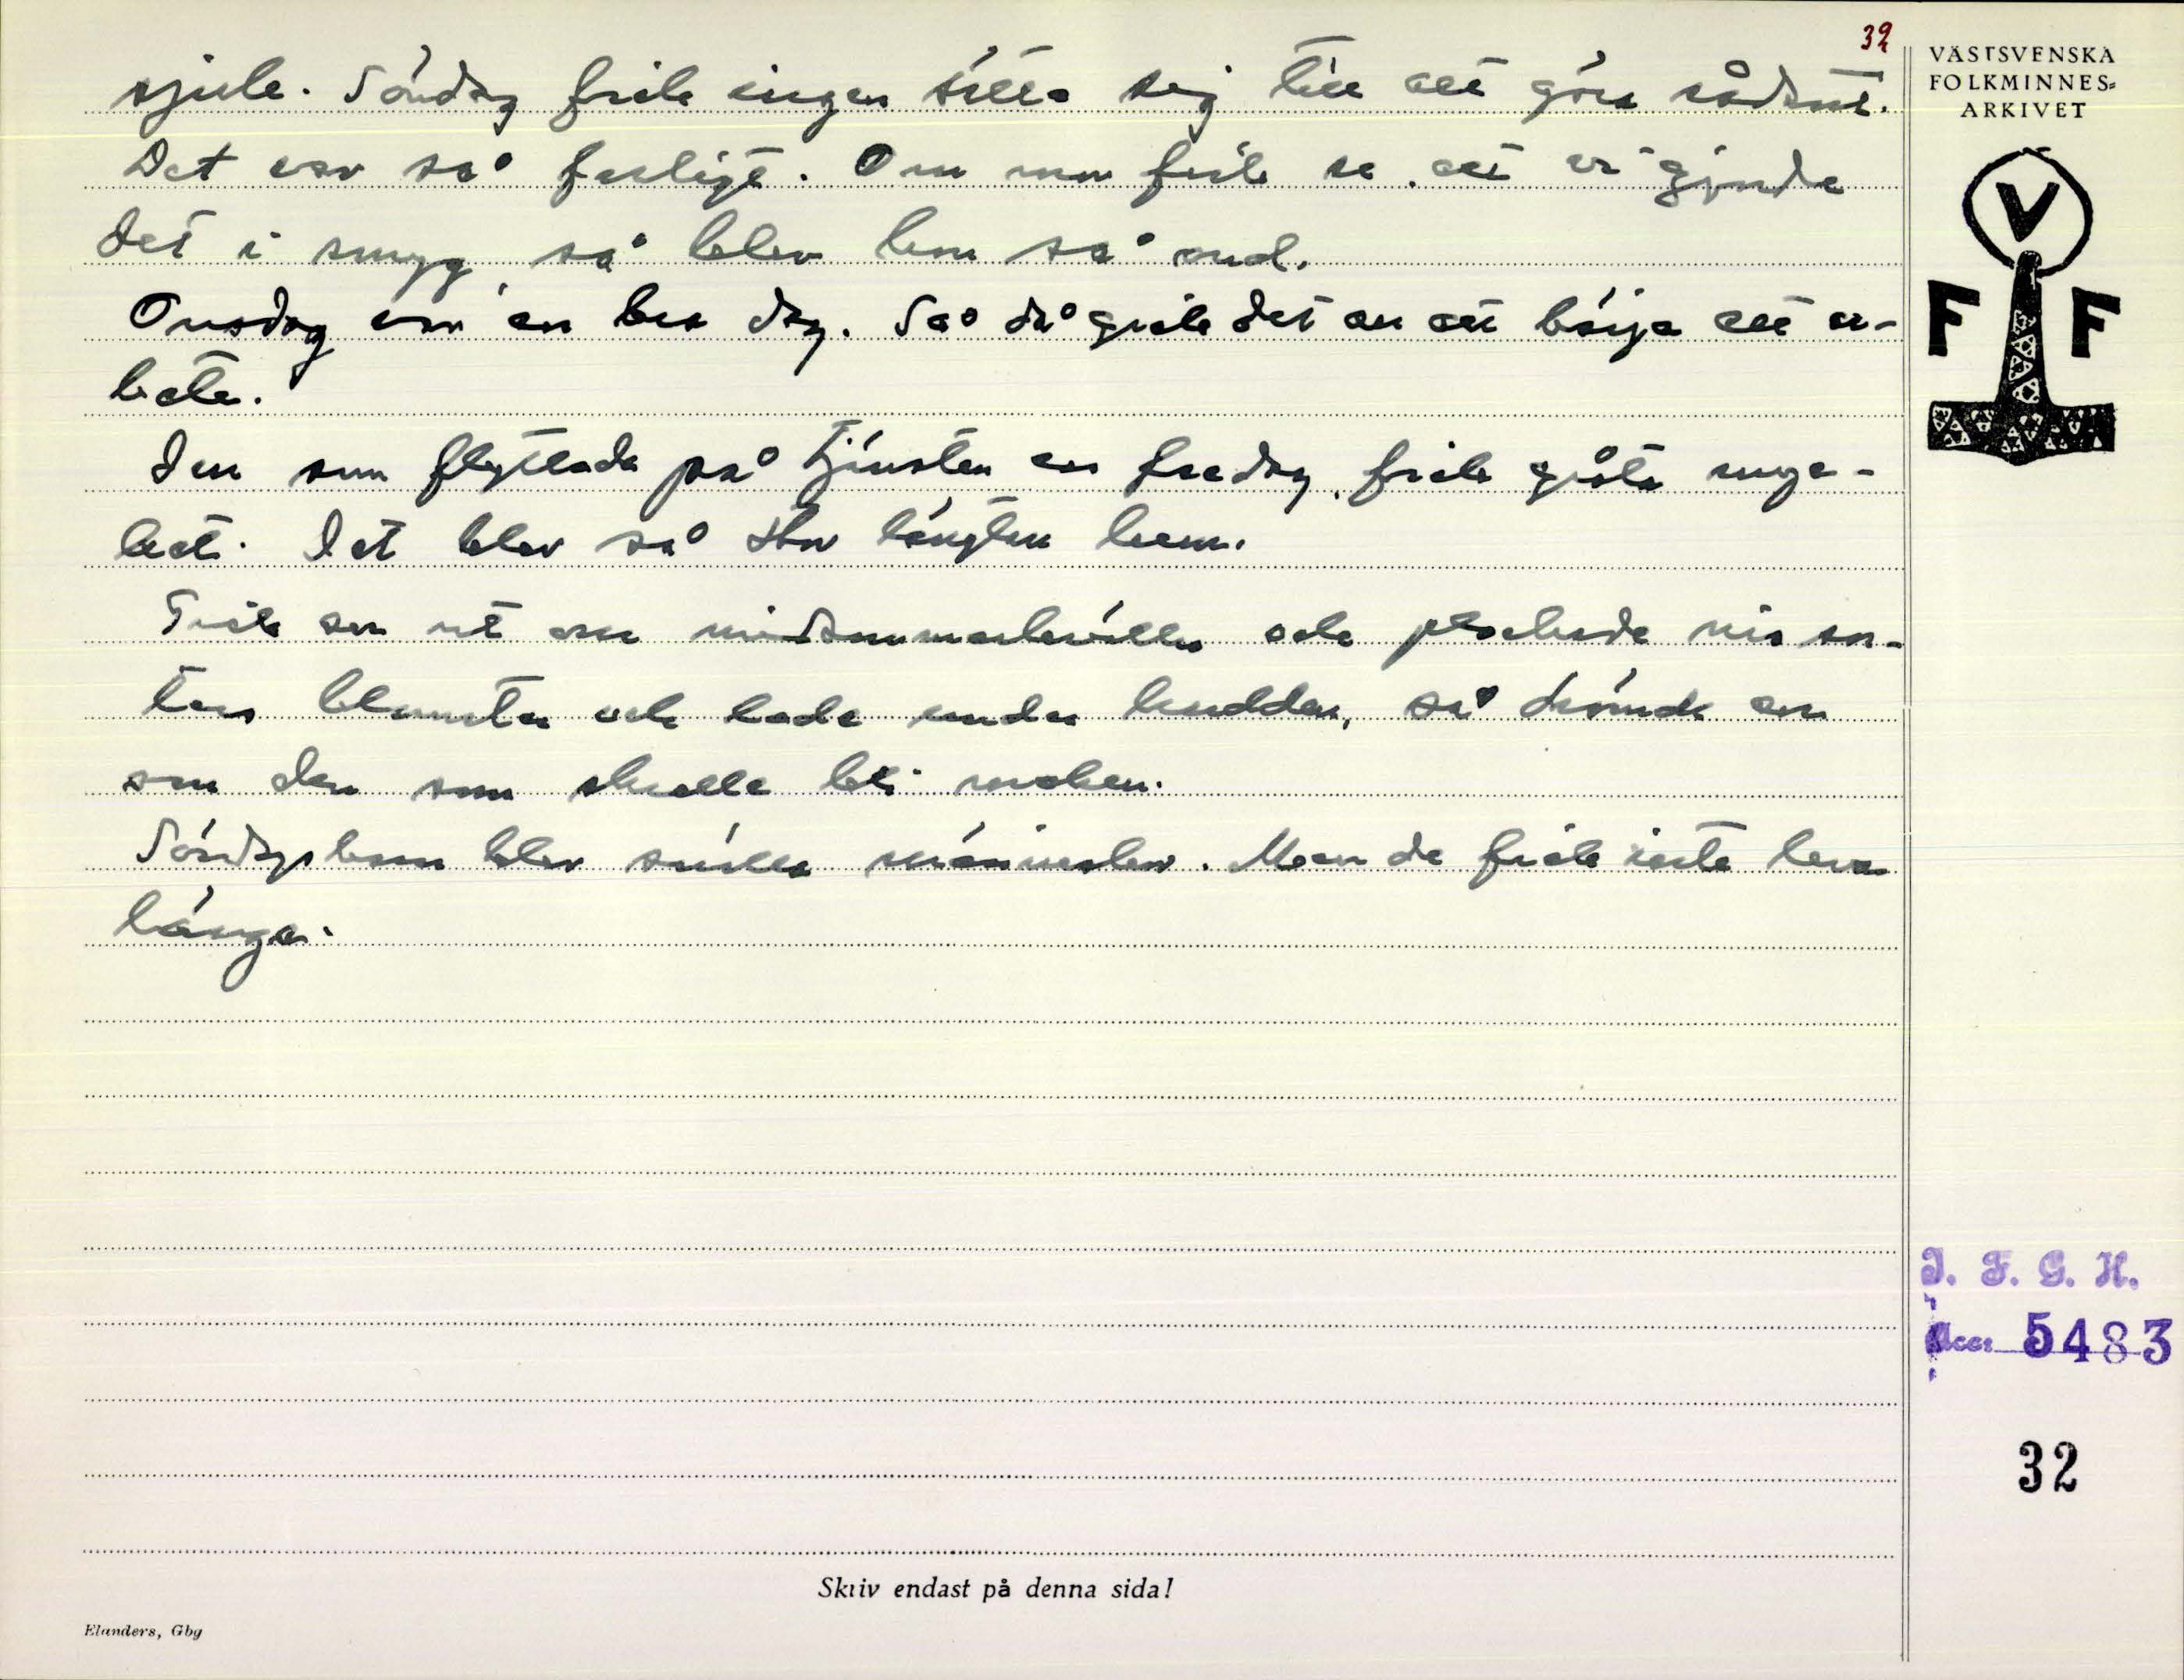 32
sjuk. Söndag fick ingen sätta sig till att göra sådant.
Det var så farligt. Om mor fick se att vi gjorde
det i smyg, så blev hon så ond.
Onsdag var en bra dag. Så då gick det an att börja att ar-
beta.
Den som flyttade på tjänsten en fredag, fick gråta myc-
ket. Det blev så stor längtan hem.
Gick en ut om midsommarkvällen och plockade nio sor-
ters blomster och lade under kudden, så drömde en
om den som skulle bli maken.
Söndagsbarn blev snälla människor. Men de fick inte leva
länge.
VÄSTSVENSKA
FOLKMINNES=
ARKIVET
V
F F
I. F. G. H.
Acc: 5483
32
Skriv endast på denna sida!
Elanders, Gbg